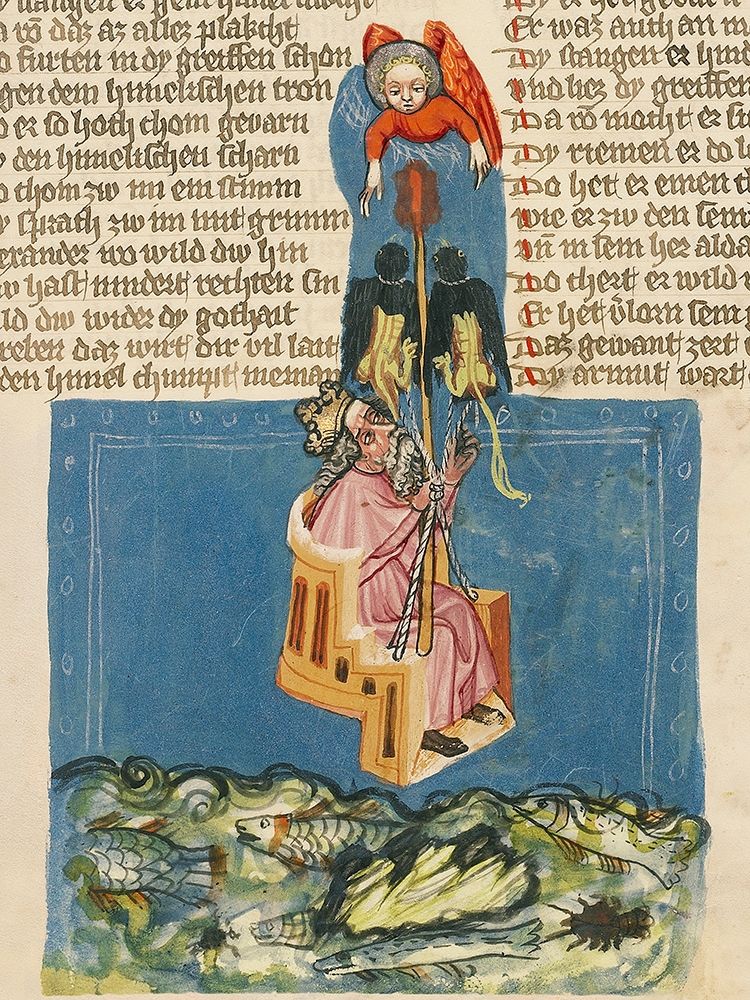 a vō daz az allez plakcht
o furten in dy greiffen schon
gen dem himelischen tron
o er so hoch chom gevarn
y den himelischen scharn
o chom zw im ein stimm
y sprach zw im mit grimm
exander wo wild dw hin
w hast nindert rechten sin
ld dw wider dy gothait
reben daz wirt dir vil lait
den himel chumpt nieman
Er waz auch an
Dy stangen er
vnd liez dy greiffen
Da vō macht er
Dy riemen er do
Do het er einen
wie er zw den
vn̄ in sem her alda
Do chert er wild
Er het v̄lorn sem
Daz gewant zert
Dy armut wart